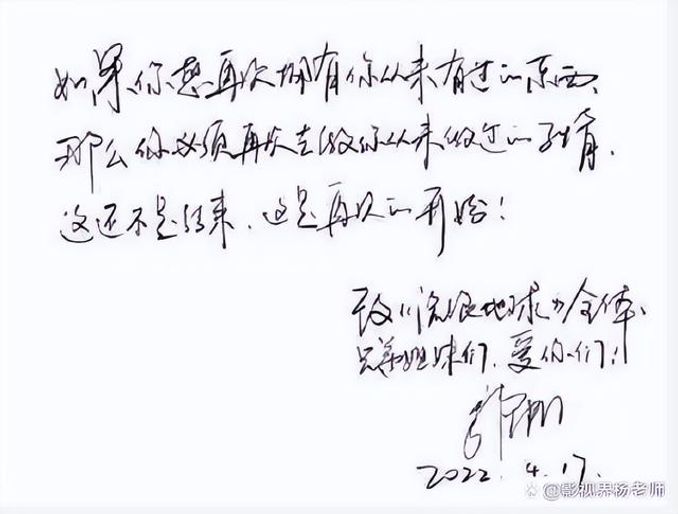 如果你想再次拥有你从来有过的东西、
那么你必须再次去做你从来做过的事情.
这还不是结束、这是再次的开始!
致《流浪地球》全体、
兄弟姐妹们、爱你们!
2022.4.17.
@影视界杨老师